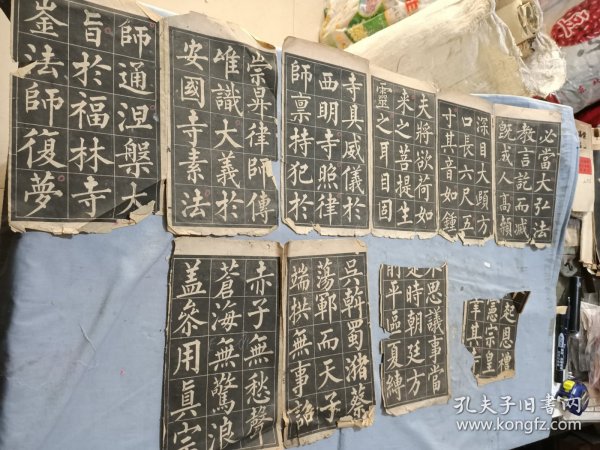 必當大弘法
教言訖而滅
既成人高顙
深目大頤方
口長六尺五
寸其音如鍾
夫將欲荷如
来之菩提生
靈之耳目固
寺具威儀於
西明寺照律
師禀持犯於
崇昇律師傳
唯識大義於
安國寺素法
師通涅槃大
旨於福林寺
崟法師復夢
起恩禮
憲宗皇
幸其
思議事當
是時朝廷方
削平區夏縛
吳斡蜀瀦蔡
蕩鄆而天子
端拱無事詔
赤子無愁聲
蒼海無驚浪
盖參用真宗
孔夫子旧书网
www.kongfz.com